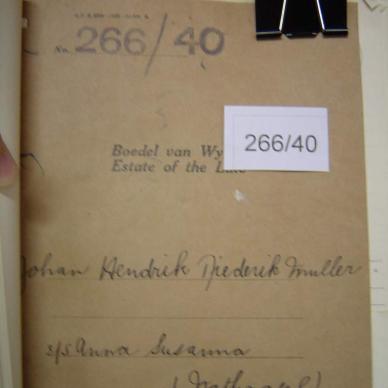 No. 266/40
266/40
Boedel van Wy
Estate of the Late
Johan Hendrik Diederik Muller
s/s Anna Susanna